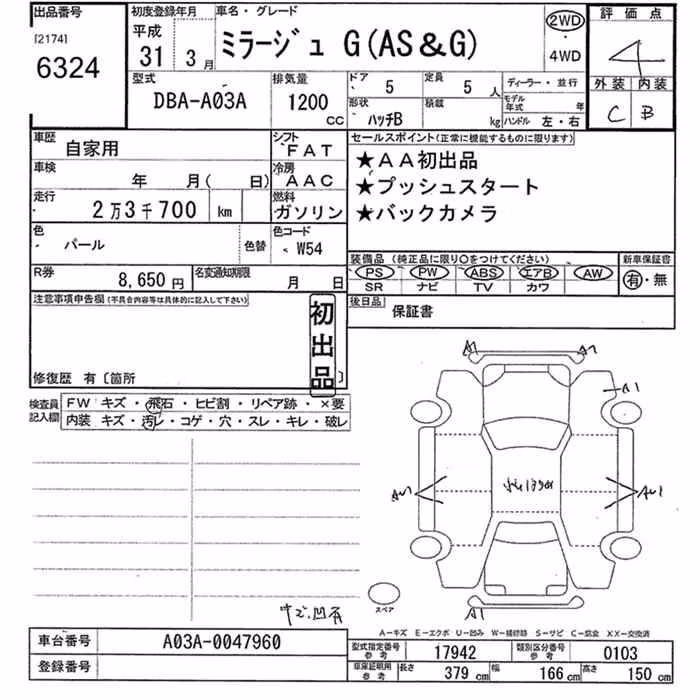 出品番号 初度登録年月 車名・グレード 評価点
[2174] 6324 平成 31 3月 ミラージュ G(AS&G) 2WD ・ 4WD 4
型式 排気量 ドア 5 定員 5人 ディーラー・並行 外装 内装
DBA-A03A 1200 CC 形状 ハッチB 積載 kg モデル年式 年 ハンドル 左・右 C B
車歴 自家用 シフト FAT セールスポイント(正常に機能するものに限ります)
車検 年 月( 日) 冷房 AAC ★AA初出品
走行 2万3千700 km 燃料 ガソリン ★プッシュスタート
★バックカメラ
色 パール 色替 色コード W54
装備品 (純正品に限り○をつけてください) 新車保証書
R券 8,650円 名変通知期限 月 日 PS PW ABS エアB AW 有・無
SR ナビ TV カワ
注意事項申告欄(不具合内容等は具体的に記入して下さい) 後日品 保証書
初出品
修復歴 有〔箇所 〕
検査員記入欄 FW キズ・飛石・ヒビ割・リペア跡・×要
内装 キズ・汚レ・コゲ・穴・スレ・キレ・破レ
A1
A1
A1
スペア
A1
A-キズ E-エクボ U-凹み W-補修跡 S-サビ C-腐食 XX-交換済
車台番号 A03A-0047960 型式指定番号 参考 17942 類別区分番号 参考 0103
登録番号 車庫証明用 参考 長さ 379 cm 幅 166 cm 高さ 150 cm